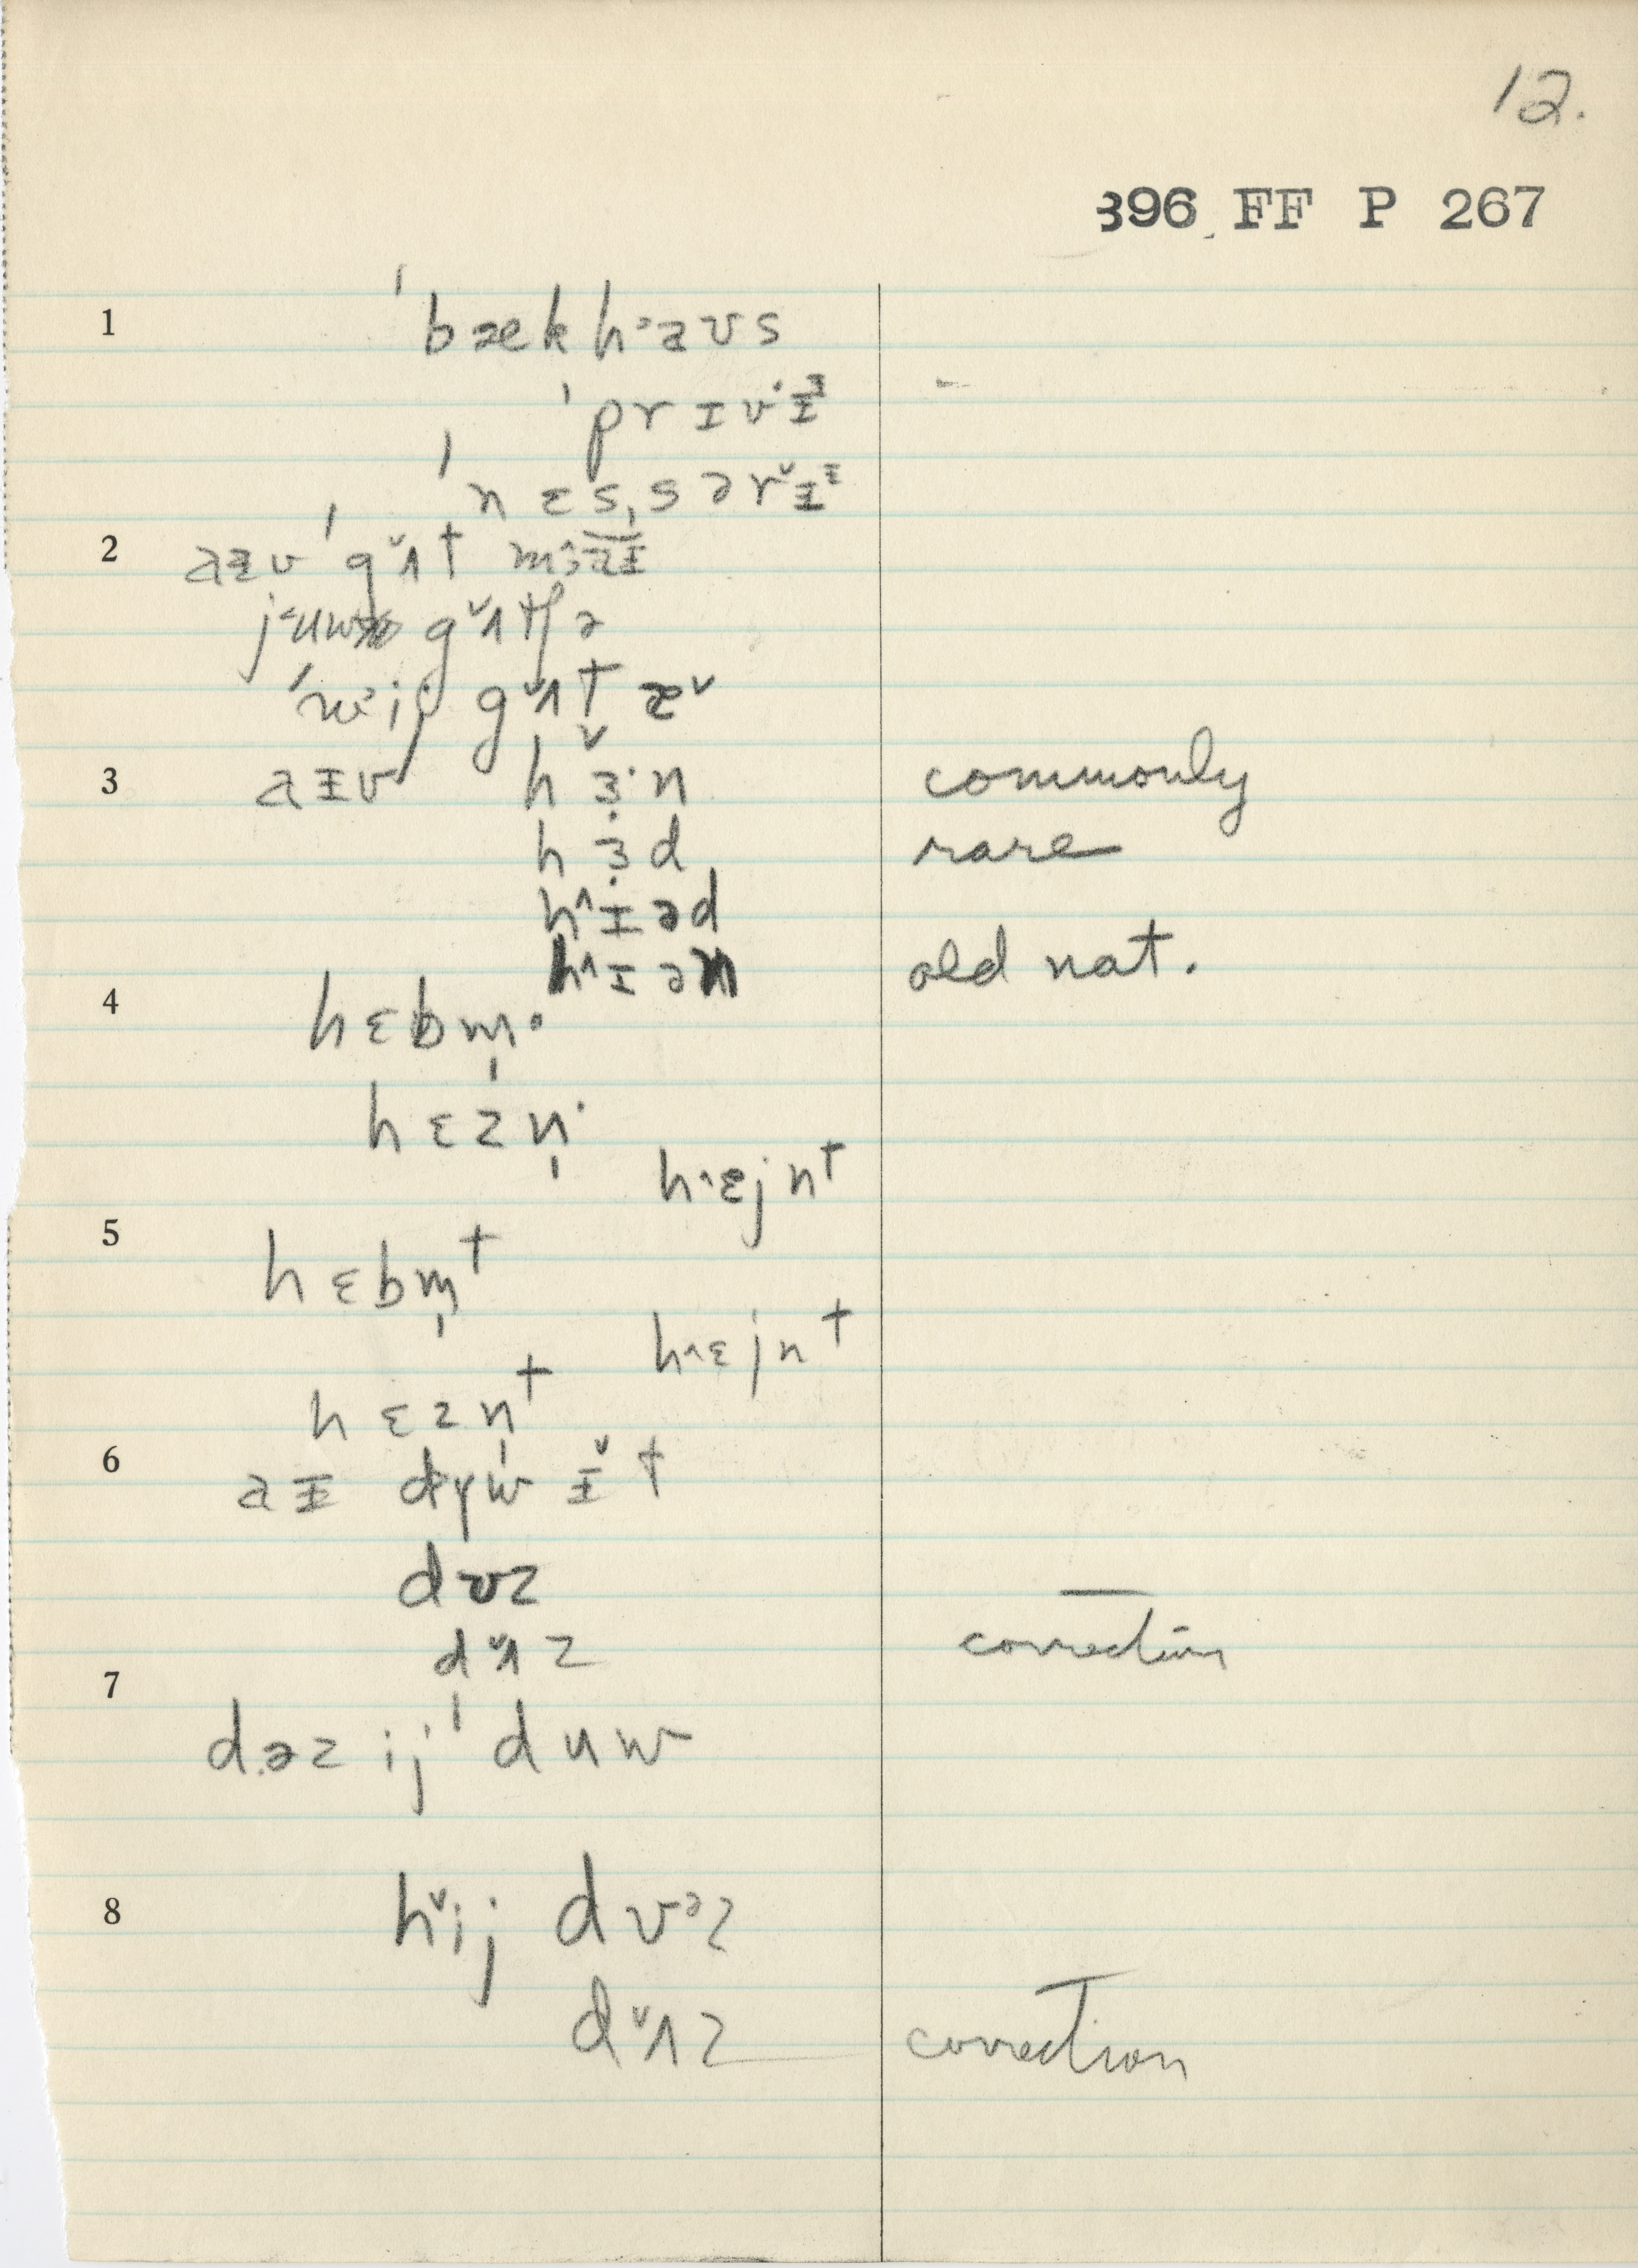 12.
396 FF P 267
1 ˈbækhᵊaʊs
ˈprɪvɪᶾ
ˈnɛsˌsərɪˇᶦ
2 aɪv ˈgʌˇt
gʌˇtʃə
gʌˇt æˇ
3 aɪv hɜˇ·n commonly
hɜ·d rare
hˆɪəd
hˆɪən old nat.
4 hɛbm̩·
hɛzn̩·
hˆɛjnᵗ
5 hɛbm̩ᵗ
hˆɛjnᵗ
hɛzn̩ᵗ
6 aɪ ɪˇt
dʊz
dʌˇz correction
7 dəz ij ˈduw
8 hˇij dʊᵊz
dʌˇz correction